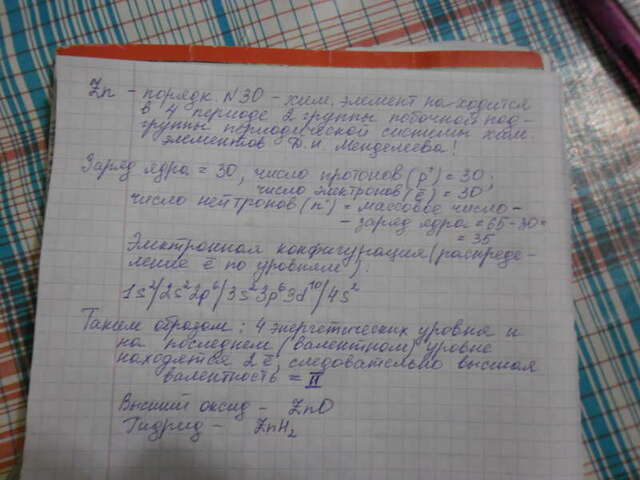 Zn - порядк. №30 - хим. элемент на-ходится
в 4 периоде 2 группы побочной под-
группы периодической системы хим.
элементов Д. И. Менделеева!
Заряд ядра = 30, число протонов (p⁺) = 30;
число электронов (ē) = 30
число нейтронов (n⁰) = массовое число -
- заряд ядра = 65 - 30 =
= 35
Электронная конфигурация (распреде-
ление ē по уровням):
1s²/2s²2p⁶/3s²3p⁶3d¹⁰/4s²
Таким образом: 4 энергетических уровня и
на последнем (валентном) уровне
находятся 2 ē, следовательно высшая
валентность = II
Высший оксид - ZnO
Гидрид - ZnH₂